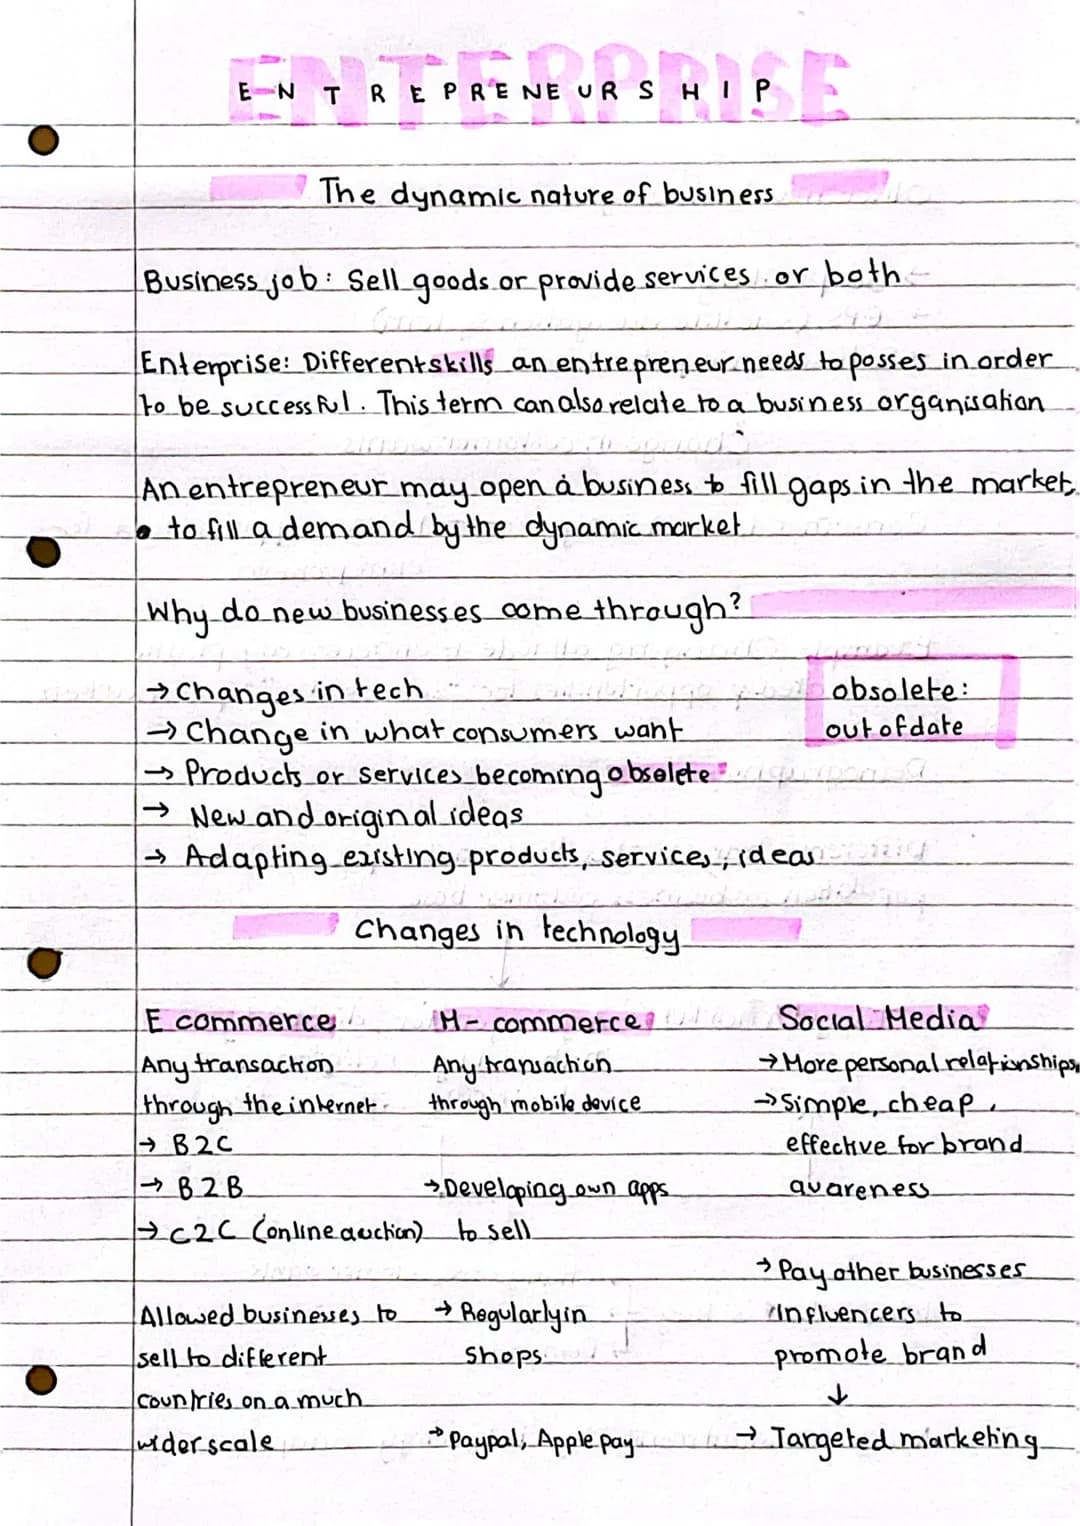 ENTERPRISE
ENTREPRENEURSHIP
The dynamic nature of business
Business job: Sell goods or provide services or both
Enterprise: Different skills an entrepreneur needs to posses in order
to be successful. This term can also relate to a business organisation
An entrepreneur may open a business to fill gaps in the market,
• to fill a demand by the dynamic market
Why do new businesses come through?
→ Changes in tech
→ Change in what consumers want
→ Products or services becoming obsolete
→ New and original ideas
→ Adapting existing products, services, ideas
obsolete:
out of date
Changes in technology
E commerce
Any transaction
through the internet.
→ B2C
→ B2B
→ C2C (online auction)
Allowed businesses to
sell to different
countries on a much
wider scale
M-commerce
Any transaction
through mobile device
→ Developing own apps
to sell
→ Regularly in
shops
→ Paypal, Apple pay
Social Media
→ More personal relationships,
→ Simple, cheap,
effective for brand
awareness
→ Pay other businesses
/Influencers to
promote brand
↓
→ Targeted marketing